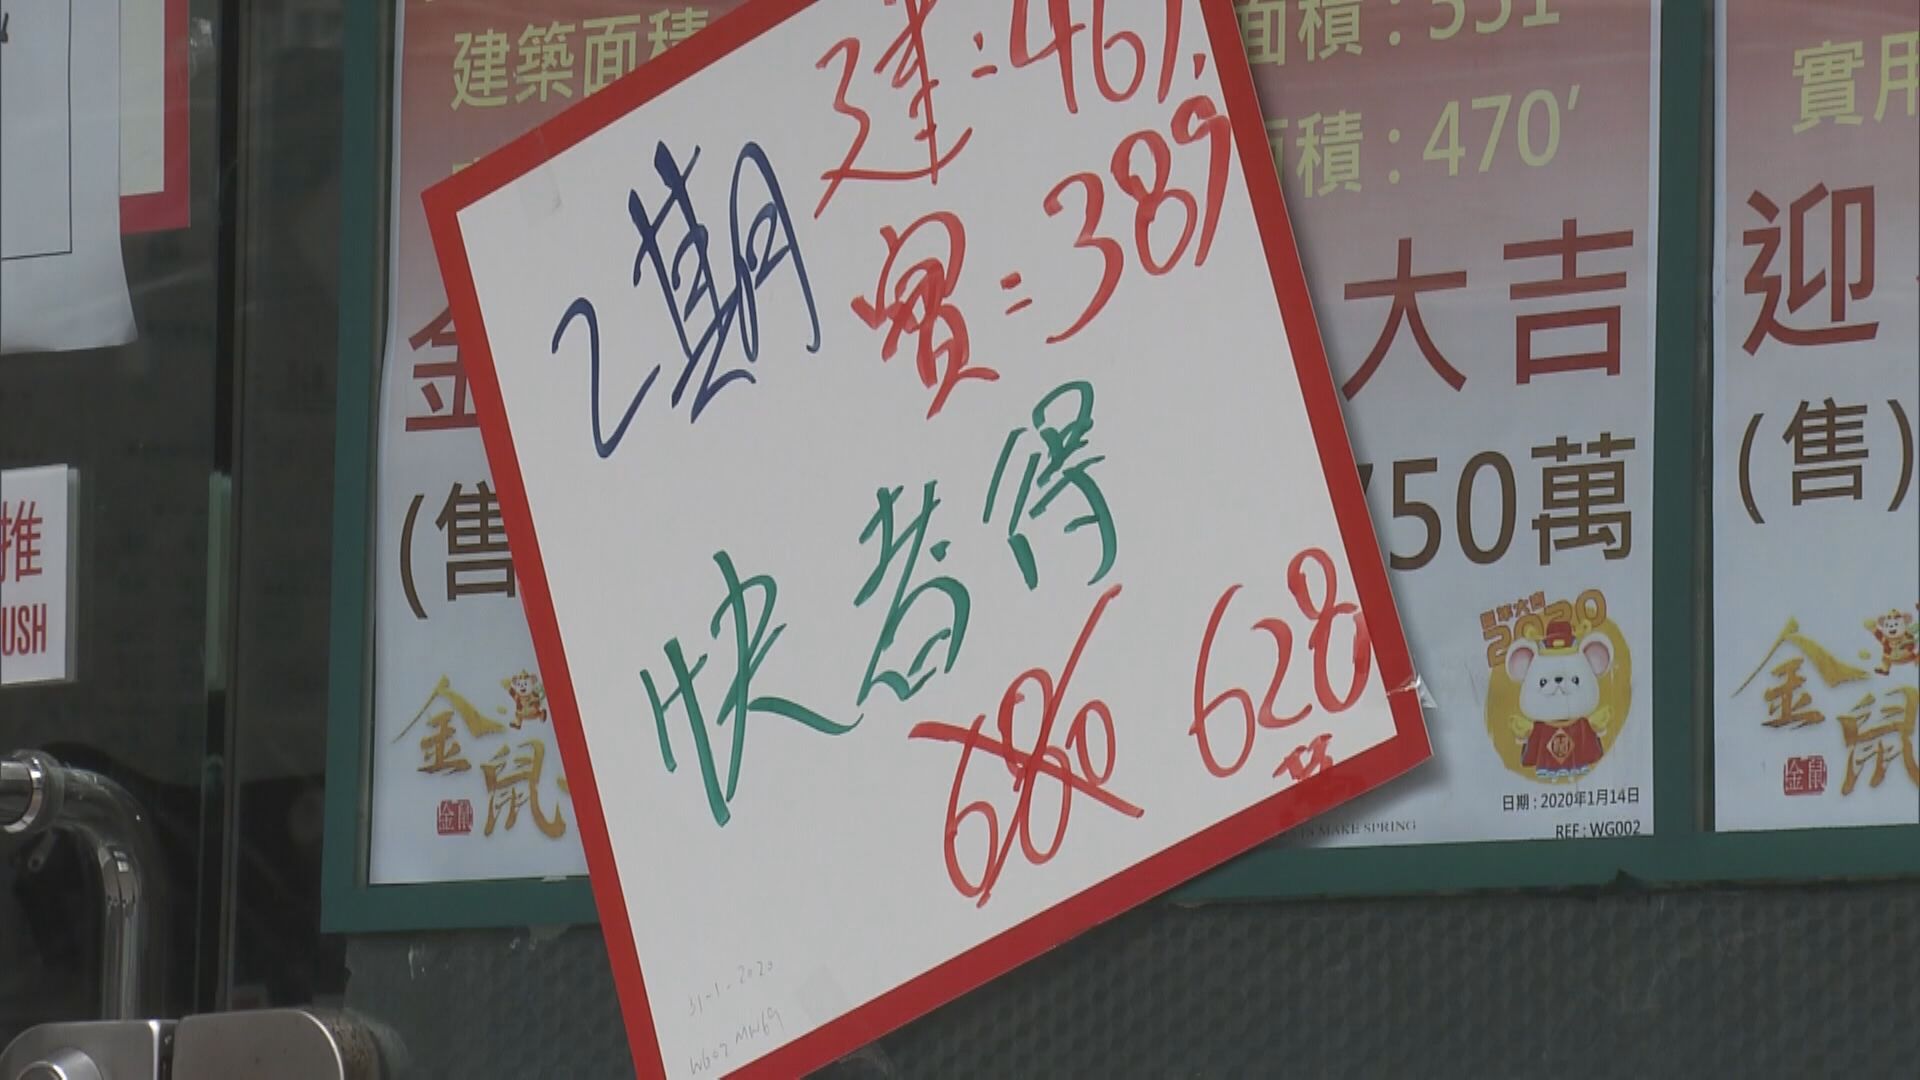 建築面積
建:467,
2期
實=389
快者得
680 628
萬
31-1-2020
WG02 MW69
面積:551'
面積:470'
大吉
750萬
2020
日期:2020年1月14日
REF:WG002
MAKE SPRING
金
(售
金鼠
金鼠
實用
迎
(售)
金鼠
金鼠
推
USH